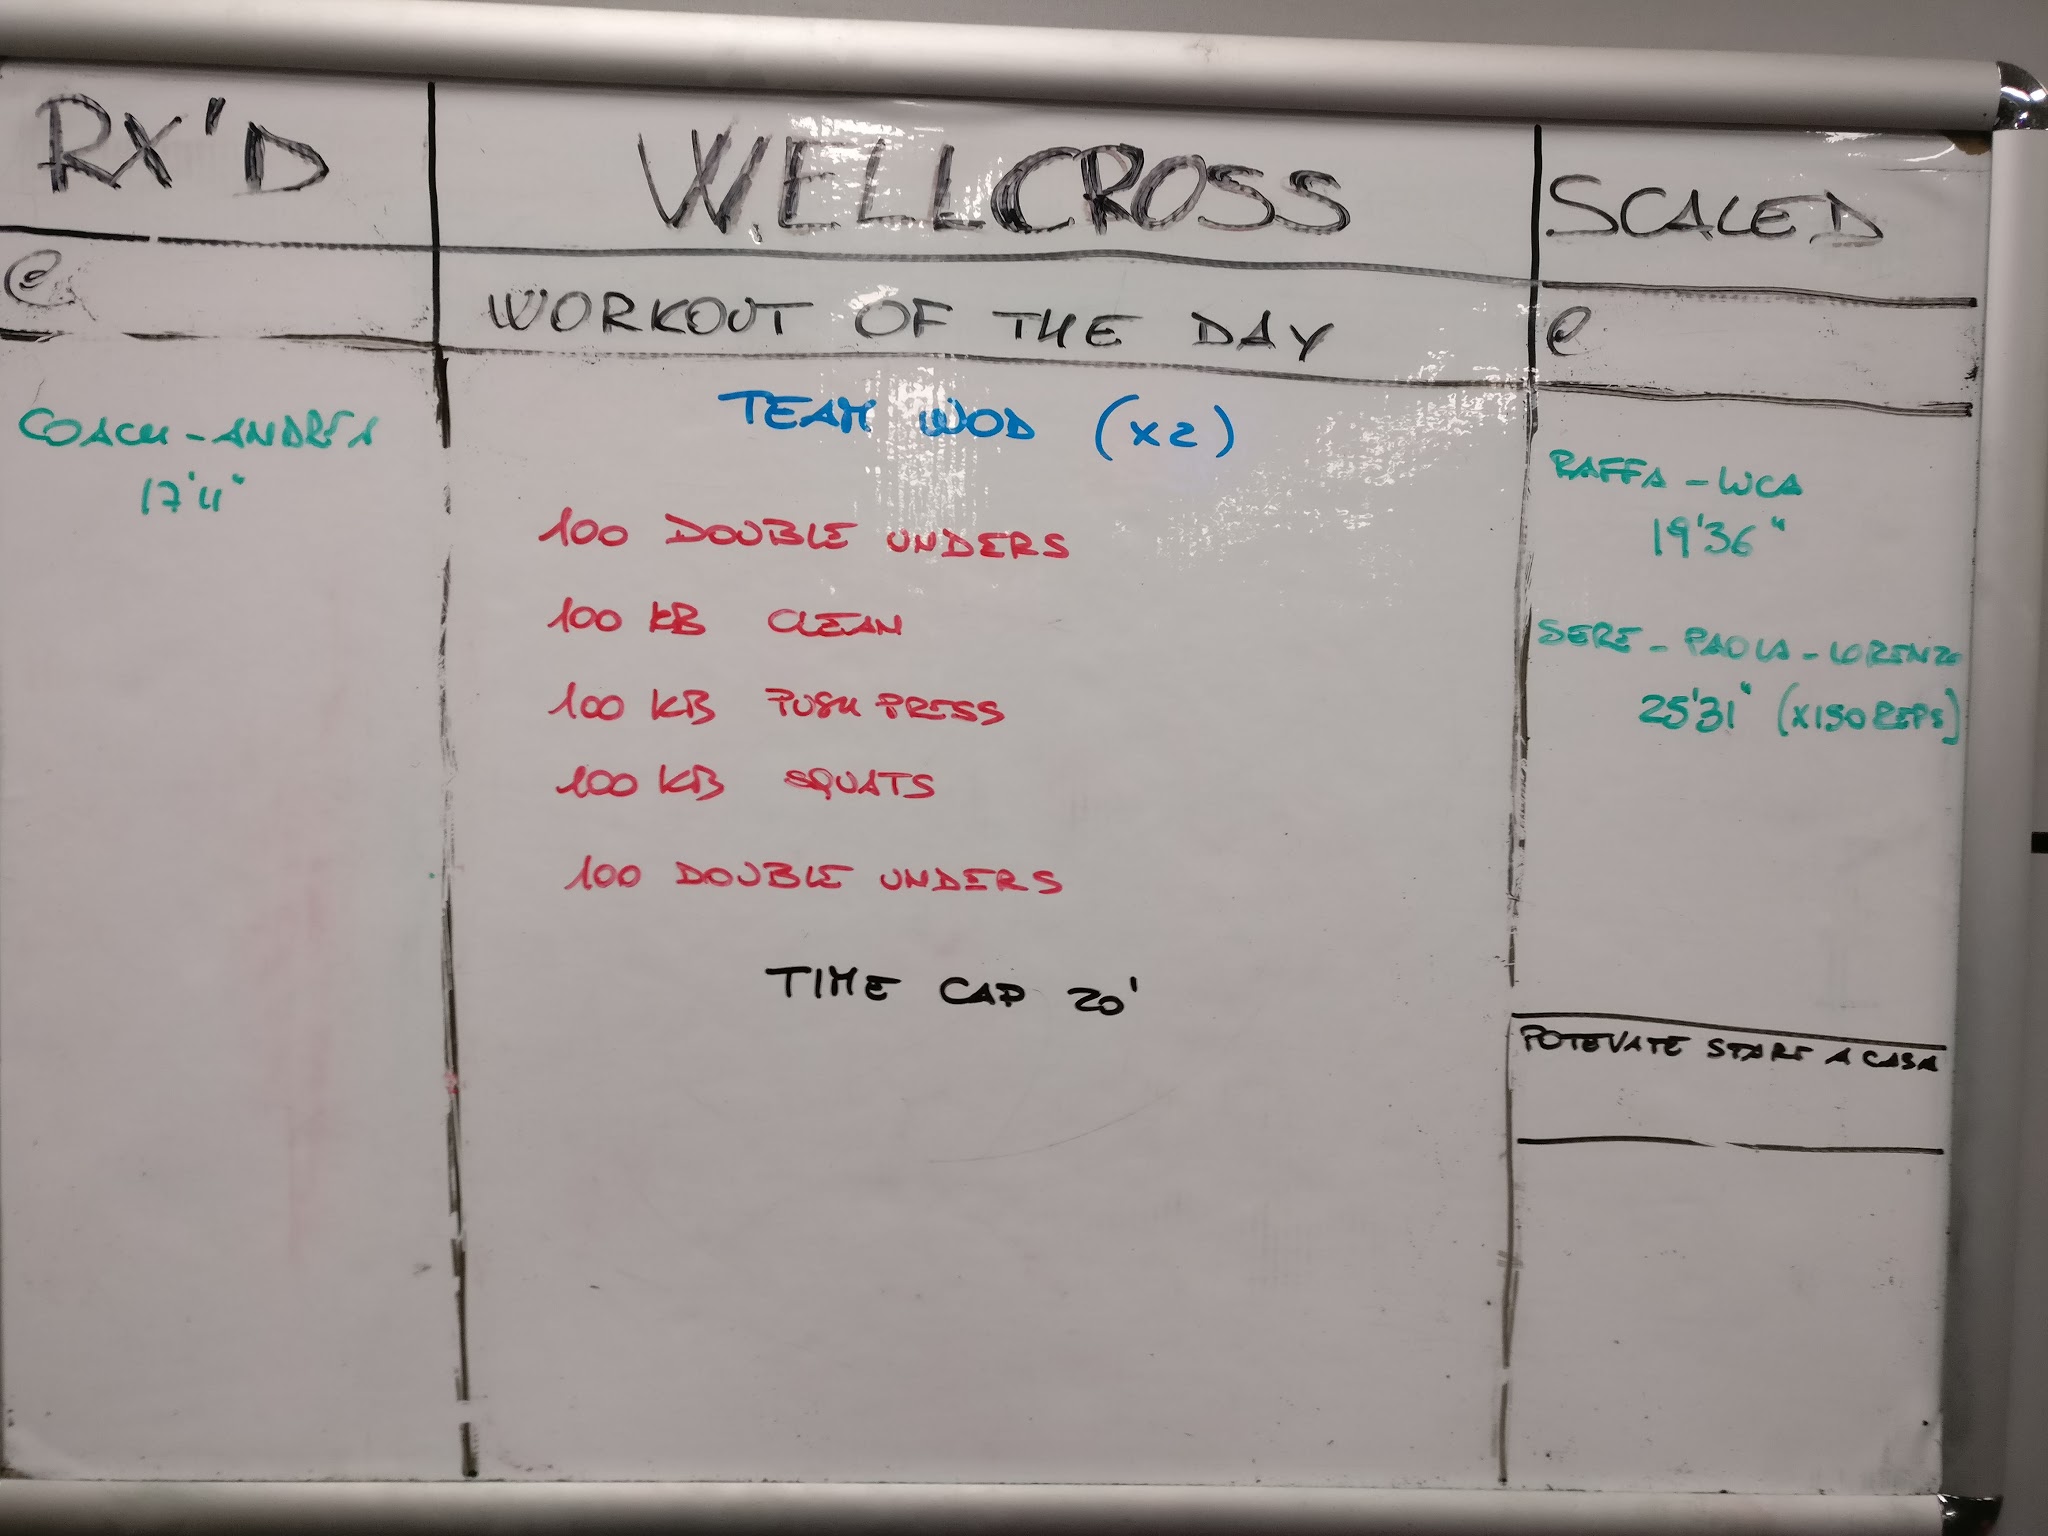 RX'D
@
COACH - ANDREA
17'11"
WELLCROSS
WORKOUT OF THE DAY
TEAM WOD (X2)
100 DOUBLE UNDERS
100 KB CLEAN
100 KB PUSH PRESS
100 KB SQUATS
100 DOUBLE UNDERS
TIME CAP 20'
SCALED
@
RAFFA - LUCA
19'36"
SERE - PAOLA - LORENZO
25'31" (X150 REPS)
POTEVATE STARE A CASA